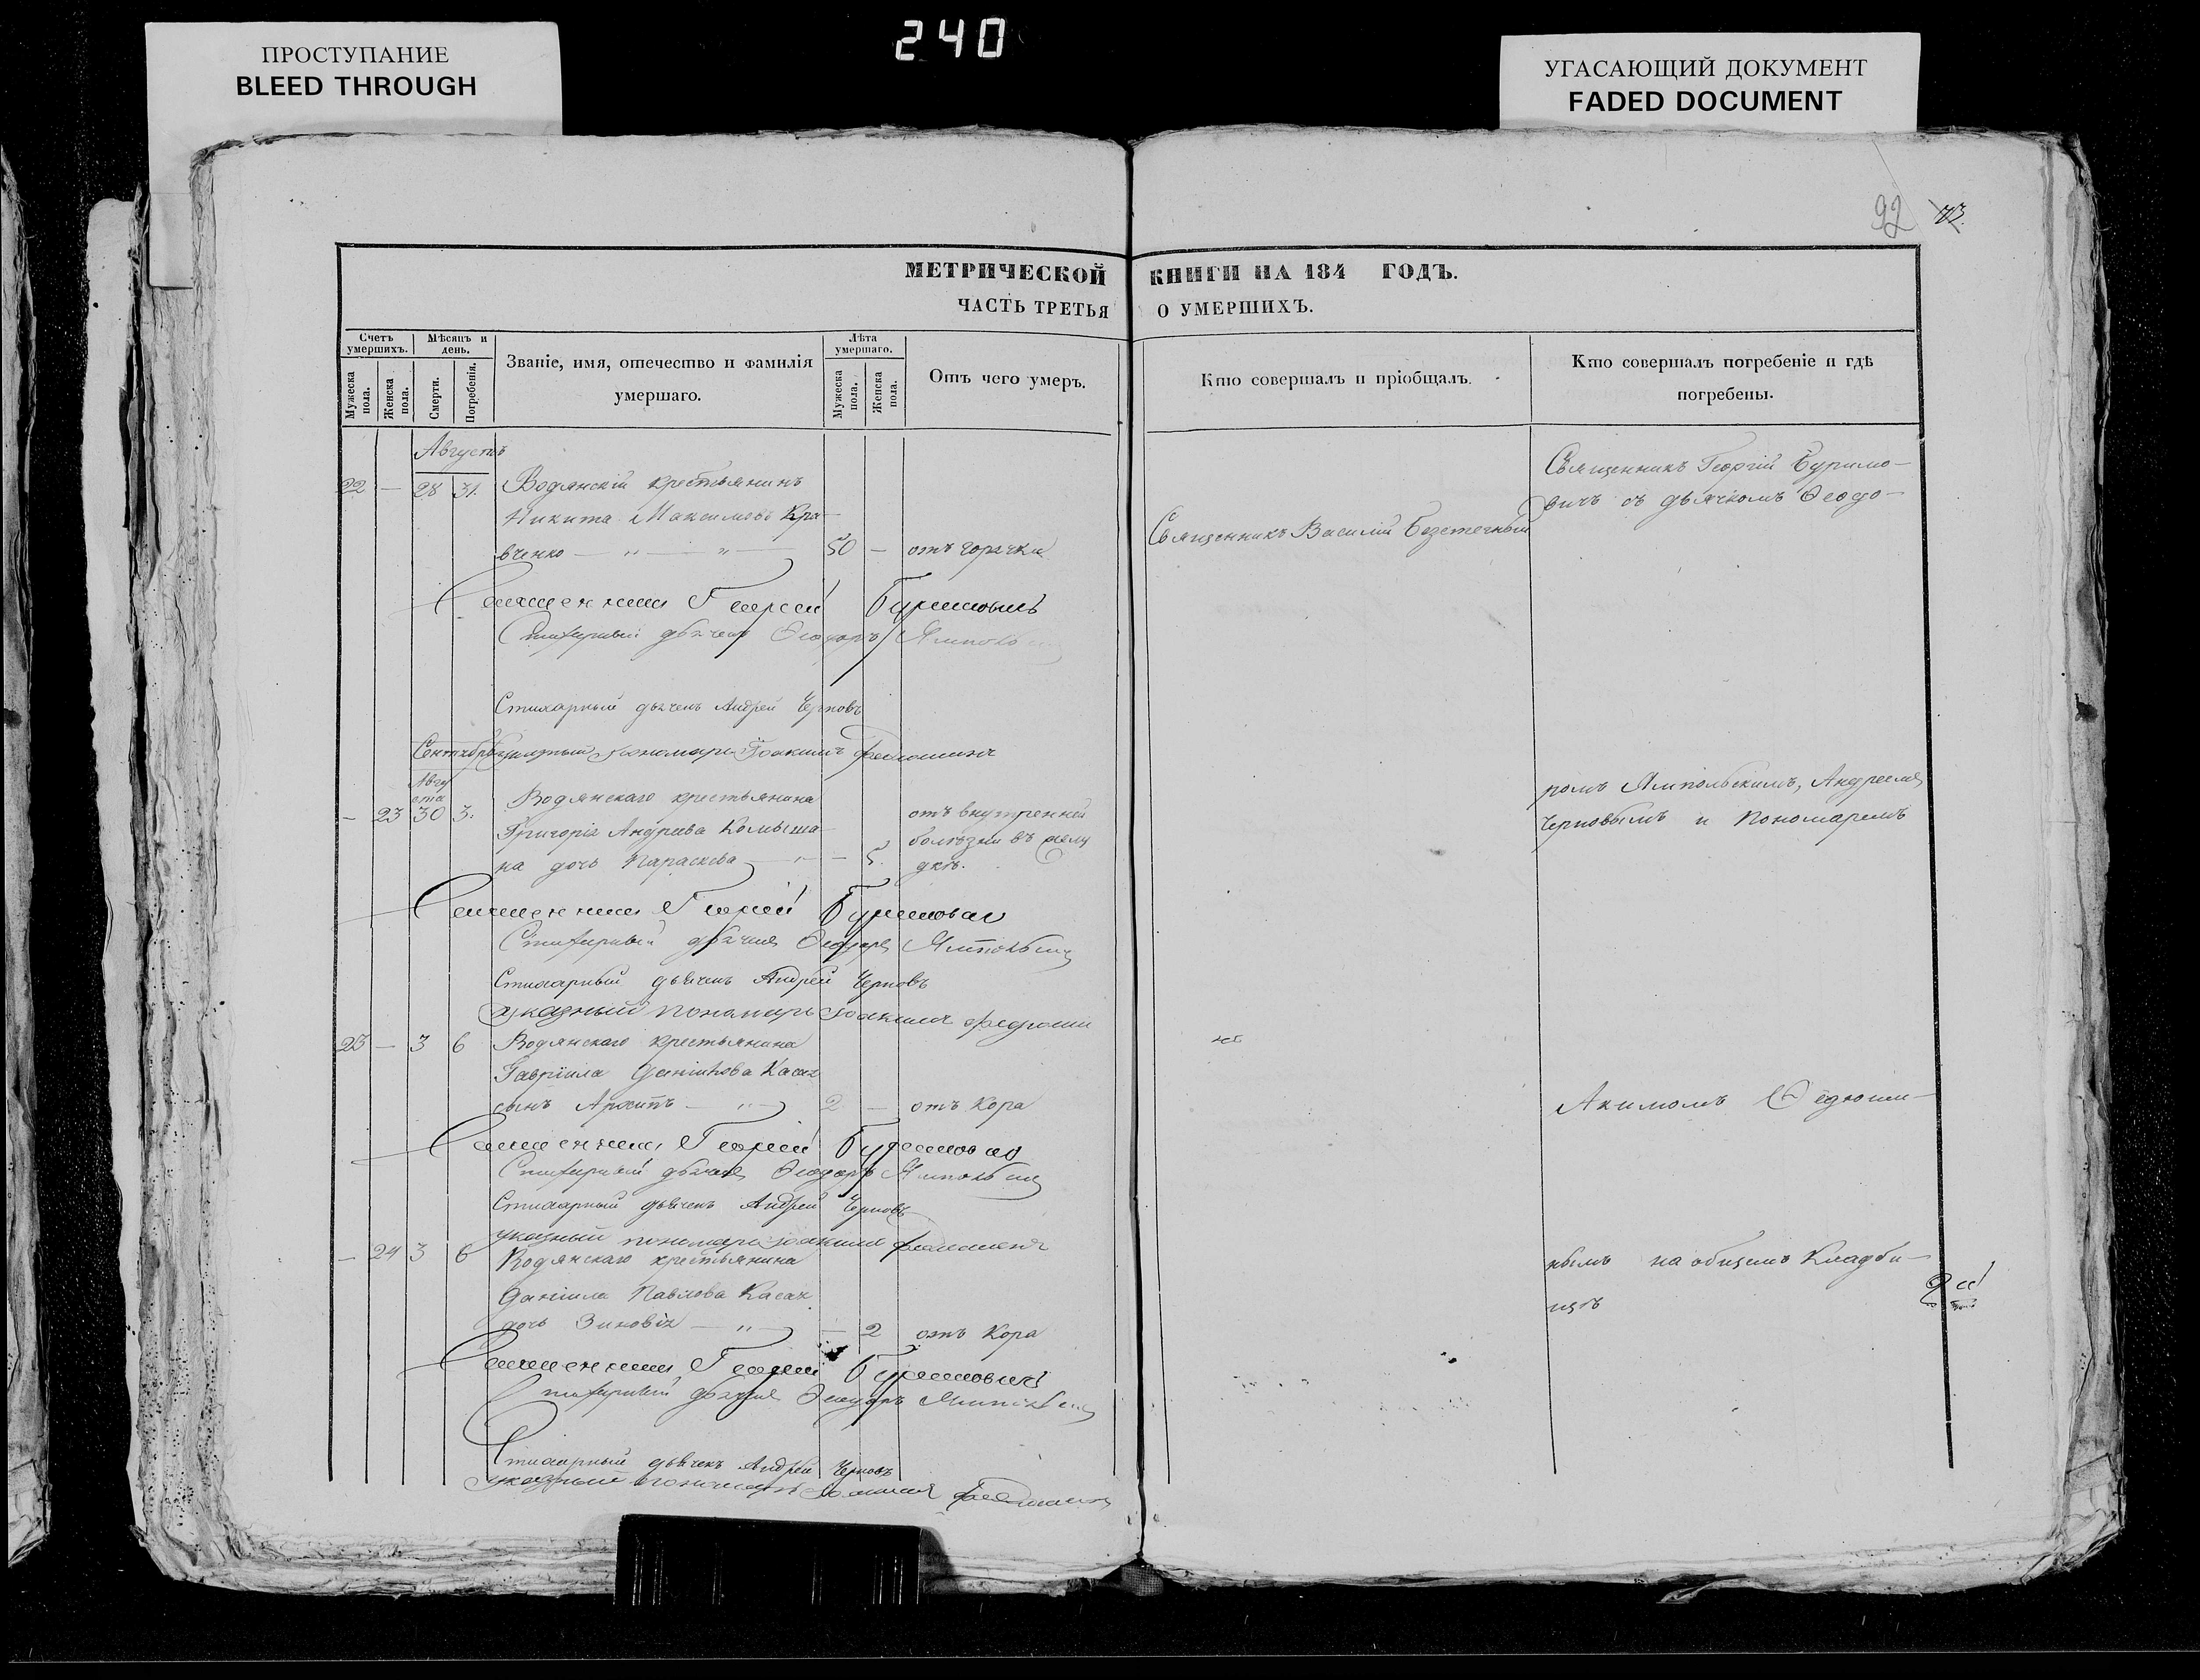 ПРОСТУПАНИЕ
BLEED THROUGH
240
УГАСАЮЩИЙ ДОКУМЕНТ
FADED DOCUMENT
92 73.
МЕТРИЧЕСКОЙ КНИГИ НА 184 ГОДЪ.
ЧАСТЬ ТРЕТЬЯ О УМЕРШИХЪ.
Счетъ умершихъ.
Мѣсяцъ и день.
Званіе, имя, отечество и фамилія умершаго.
Лѣта умершаго.
Отъ чего умеръ.
Кто совершалъ и пріобщалъ.
Кто совершалъ погребеніе и гдѣ погребены.
Мужеска пола.
Женска пола.
Смерти.
Погребенія.
Мужеска пола.
Женска пола.
Августъ
22 — 28 31. Водянскій крестьянинъ
Никита Максимовъ Кра-
вченко — " — " — 50 — отъ горячки
Священникъ Василій Безстечный
Священникъ Георгій Буримо-
вичъ съ дьячкомъ Ѳеодо-
Священникъ Георгій Буримовичъ
Стихарный дьячекъ Ѳеодоръ Ямпольскій
Стихарный дьячекъ Андрей Черновъ
Сентябрь
указный пономарь Іоакимъ Федюшинъ
Августа
— 23 30 3. Водянскаго крестьянина
Григорія Андреева Комыша-
на дочь Параскева — " — — 5. отъ внутренней
болѣзни въ желу
дкѣ.
ромъ Ямпольскимъ, Андреемъ
Черновымъ и Пономаремъ
Священникъ Георгій Буримовичъ
Стихарный дьячекъ Ѳеодоръ Ямпольскій
Стихарный дьячекъ Андрей Черновъ
указный пономарь Іоакимъ Федюшинъ
23 — 3 6 Водянскаго крестьянина
Гавріила Даніилова Касая
сынъ Архипъ — " — 2 — отъ Кора
Акимомъ Ѳедюши-
Священникъ Георгій Буримовичъ
Стихарный дьячекъ Ѳеодоръ Ямпольскій
Стихарный дьячекъ Андрей Черновъ
указный пономарь Іоакимъ Федюшинъ
— 24 3 6 Водянскаго крестьянина
Даніила Павлова Касая
дочь Зиновія — " — — 2 отъ Кора
нымъ на общемъ Кладби-
щѣ
Священникъ Георгій Буримовичъ
Стихарный дьячекъ Ѳеодоръ Ямпольскій
Стихарный дьячекъ Андрей Черновъ
указный пономарь Іоакимъ Федюшинъ